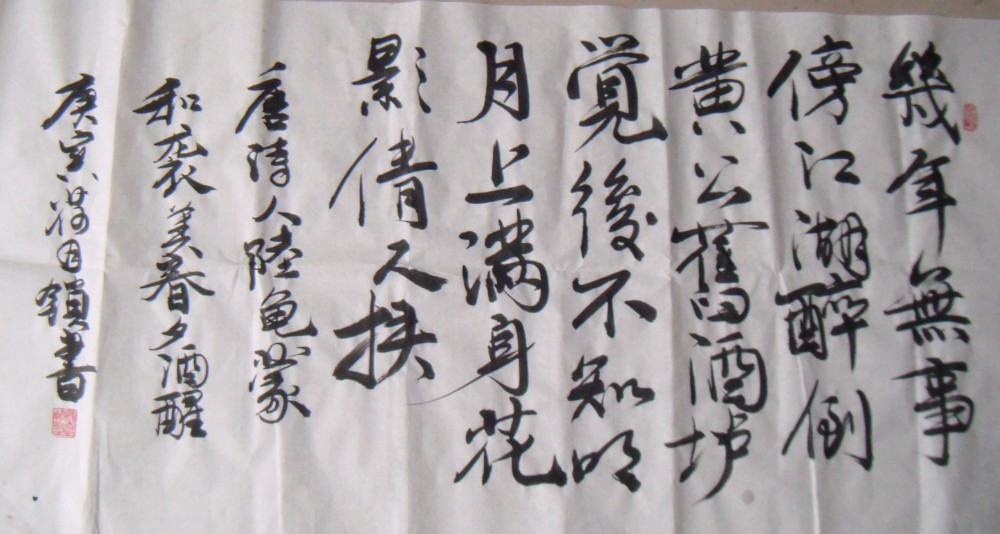 幾年無事
傍江湖醉倒
黄公舊酒垆
覺後不知明
月上满身花
影倩人扶
唐詩人陸龟蒙
和袭美春夕酒醒
庚寅荷月鎖書